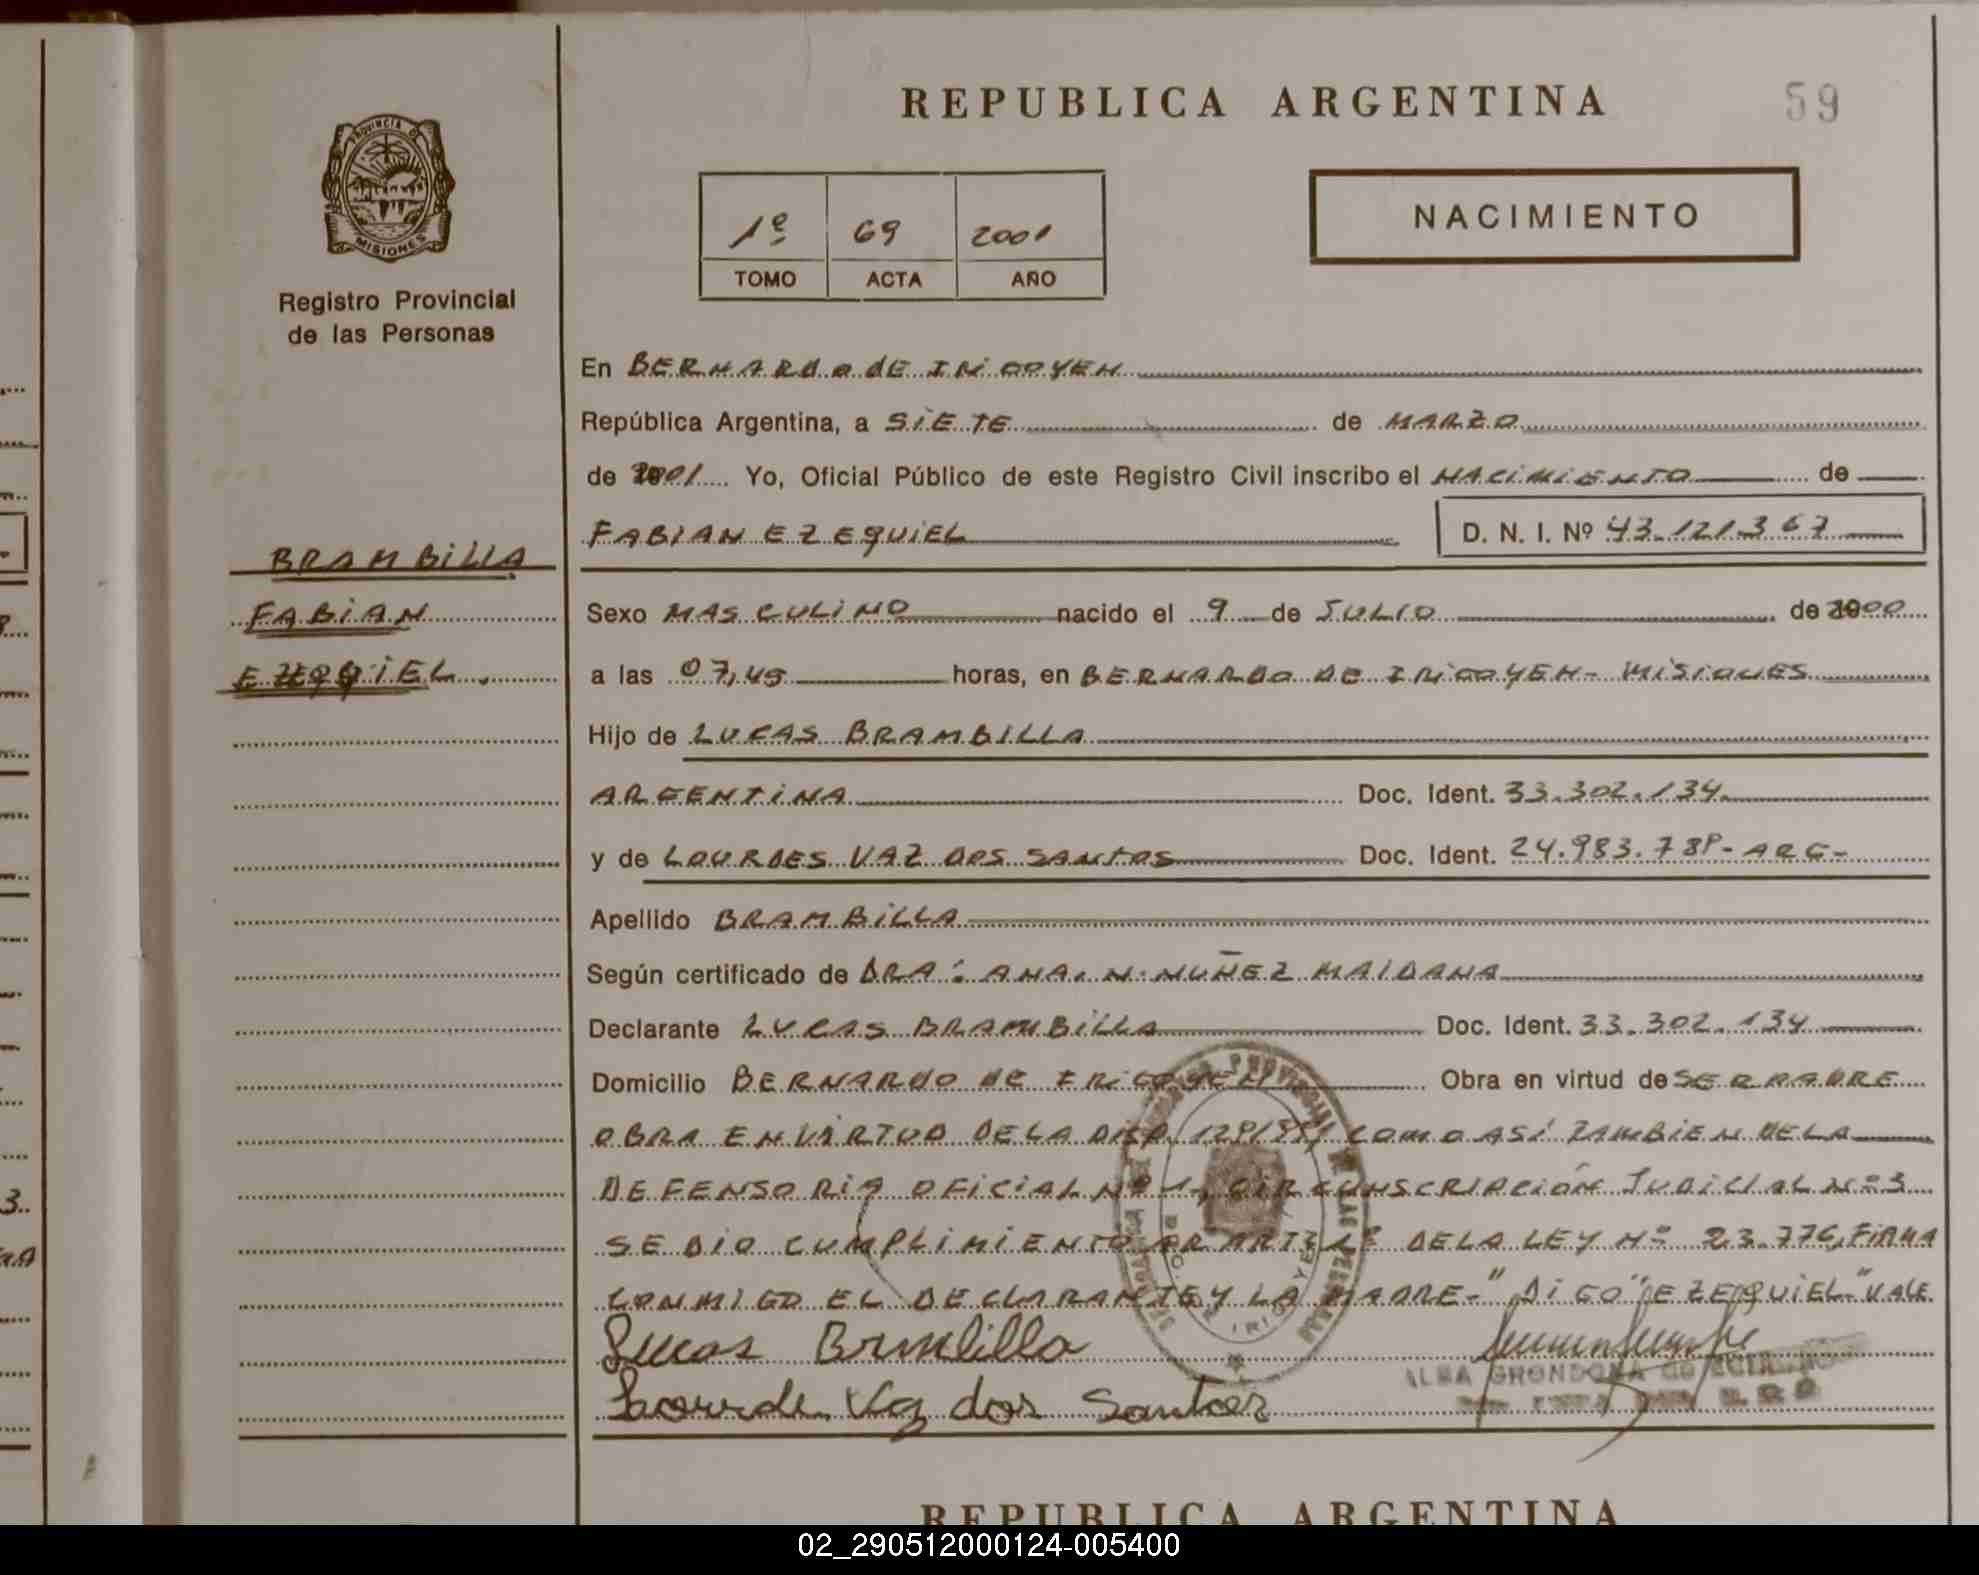 REPUBLICA ARGENTINA
59
PROVINCIA DE
MISIONES
Registro Provincial
de las Personas
1º 69 2001
TOMO ACTA AÑO
NACIMIENTO
En BERNARDO DE IRIGOYEN
República Argentina, a SIETE de MARZO
de 2001 Yo, Oficial Público de este Registro Civil inscribo el NACIMIENTO de
FABIAN EZEQUIEL D. N. I. Nº 43.121.367
BRAMBILLA
FABIAN
EZEQUIEL.
Sexo MASCULINO nacido el 9 de JULIO de 2000
a las 07,45 horas, en BERNARDO DE IRIGOYEN - MISIONES
Hijo de LUCAS BRAMBILLA
ARGENTINA Doc. Ident. 33.302.134
y de LOURDES VAZ DOS SANTOS Doc. Ident. - ARG-
Apellido BRAMBILLA
Según certificado de DRA: ANA. N. NUÑEZ MAIDANA
Declarante LUCAS BRAMBILLA Doc. Ident. 33.302.134
Domicilio BERNARDO DE IRIGOYEN Obra en virtud de SER PADRE
OBRA EN VIRTUD DE LA DISP. COMO ASÍ TAMBIEN DE LA
DEFENSORIA OFICIAL Nº 1, CIRCUNSCRIPCIÓN JUDICIAL Nº 3
SE DIO CUMPLIMIENTO AR ART. 1º DE LA LEY Nº 23.776, FIRMA
CONMIGO EL DECLARANTE Y LA MADRE-" DIGO "EZEQUIEL" VALE
Lucas Brambilla
Lourde Vaz dos Santos
ALBA GRONDONA
REPUBLICA ARGENTINA
02_290512000124-005400